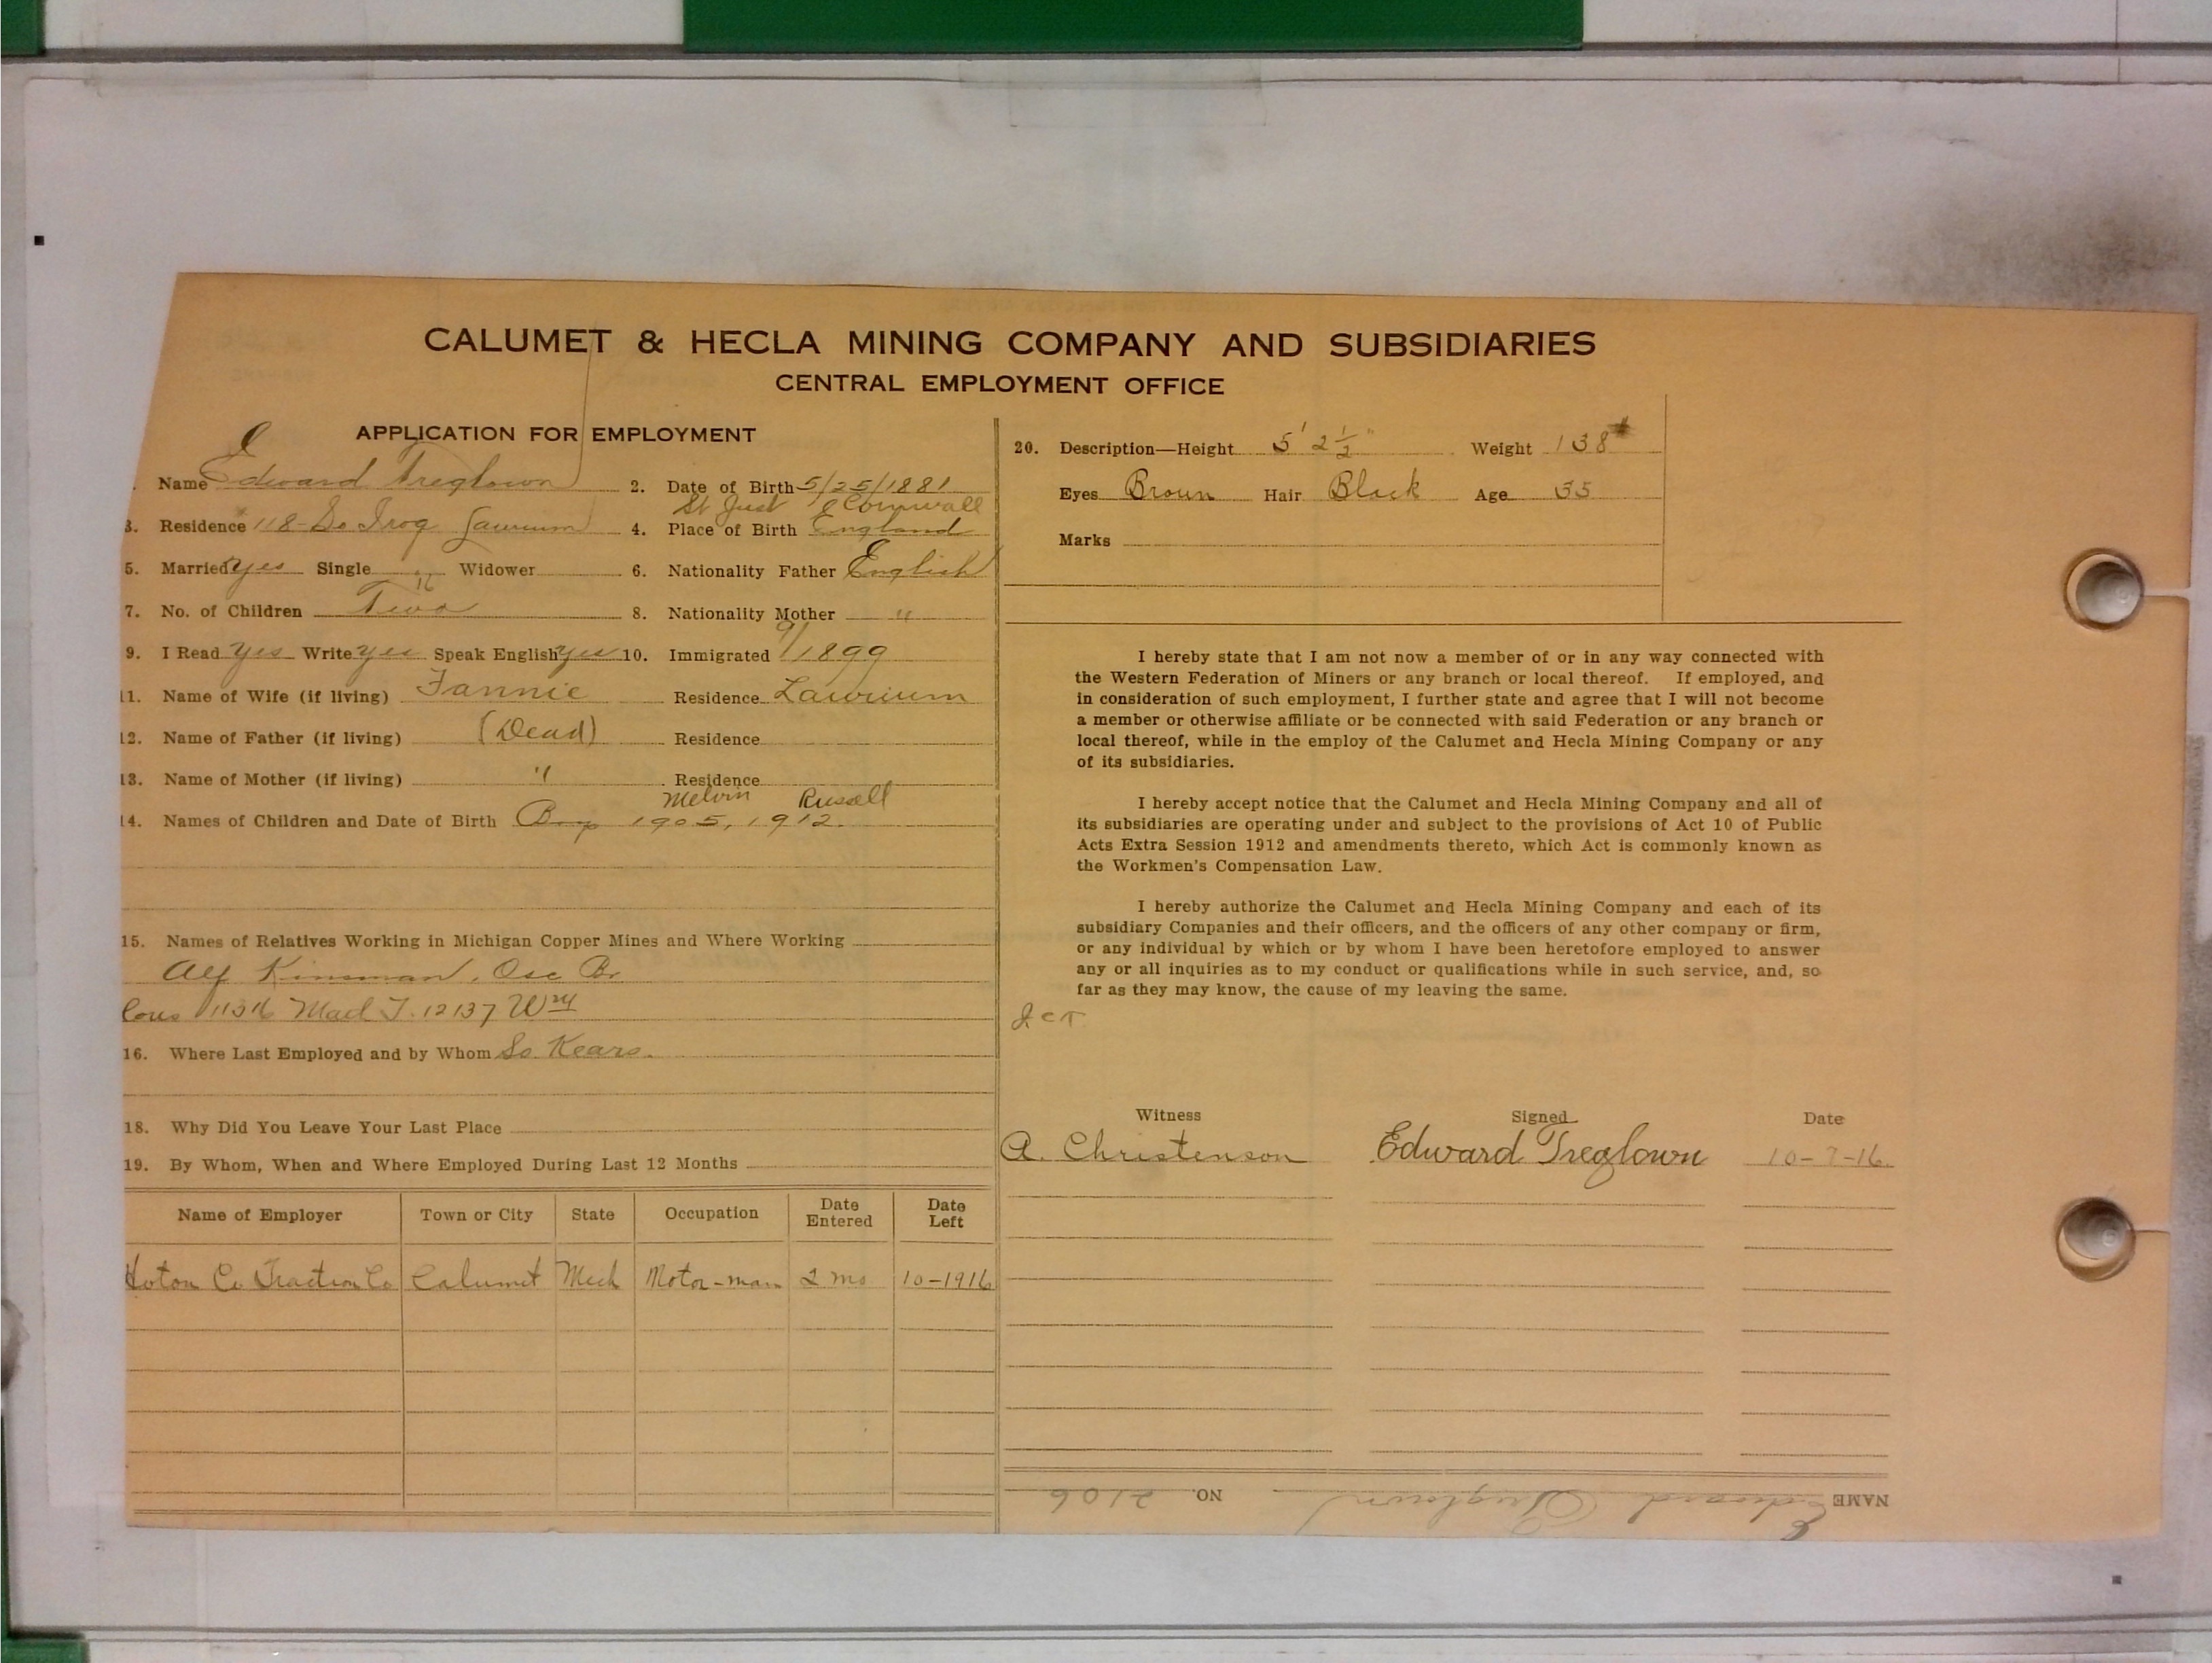 CALUMET & HECLA MINING COMPANY AND SUBSIDIARIES
CENTRAL EMPLOYMENT OFFICE
APPLICATION FOR EMPLOYMENT
Name Edward Treglown 2. Date of Birth 5/25/1881
St Just Cornwall
3. Residence 118 So Iroq Laurium 4. Place of Birth England
5. Married yes Single Widower 6. Nationality Father English
7. No. of Children Two 8. Nationality Mother "
9. I Read yes Write yes Speak English yes 10. Immigrated 9/1899
11. Name of Wife (if living) Fannie Residence Laurium
12. Name of Father (if living) (Dead) Residence
13. Name of Mother (if living) " Residence
Melvin Russell
14. Names of Children and Date of Birth Boy 1905, 1912.
15. Names of Relatives Working in Michigan Copper Mines and Where Working
Alf Kinsman, Osc Br
12137
16. Where Last Employed and by Whom So. Kears.
18. Why Did You Leave Your Last Place
19. By Whom, When and Where Employed During Last 12 Months
Name of Employer Town or City State Occupation Date Entered Date Left
Hoton Co Traction Co Calumet Mich Motor-man 2 mo 10-1916
20. Description—Height 5' 2 1/2" Weight 138#
Eyes Brown Hair Black Age 35
Marks
I hereby state that I am not now a member of or in any way connected with
the Western Federation of Miners or any branch or local thereof. If employed, and
in consideration of such employment, I further state and agree that I will not become
a member or otherwise affiliate or be connected with said Federation or any branch or
local thereof, while in the employ of the Calumet and Hecla Mining Company or any
of its subsidiaries.
I hereby accept notice that the Calumet and Hecla Mining Company and all of
its subsidiaries are operating under and subject to the provisions of Act 10 of Public
Acts Extra Session 1912 and amendments thereto, which Act is commonly known as
the Workmen's Compensation Law.
I hereby authorize the Calumet and Hecla Mining Company and each of its
subsidiary Companies and their officers, and the officers of any other company or firm,
or any individual by which or by whom I have been heretofore employed to answer
any or all inquiries as to my conduct or qualifications while in such service, and, so
far as they may know, the cause of my leaving the same.
Witness Signed Date
A. Christenson Edward Treglown 10-7-16.
NAME Edward Treglown NO. 2106